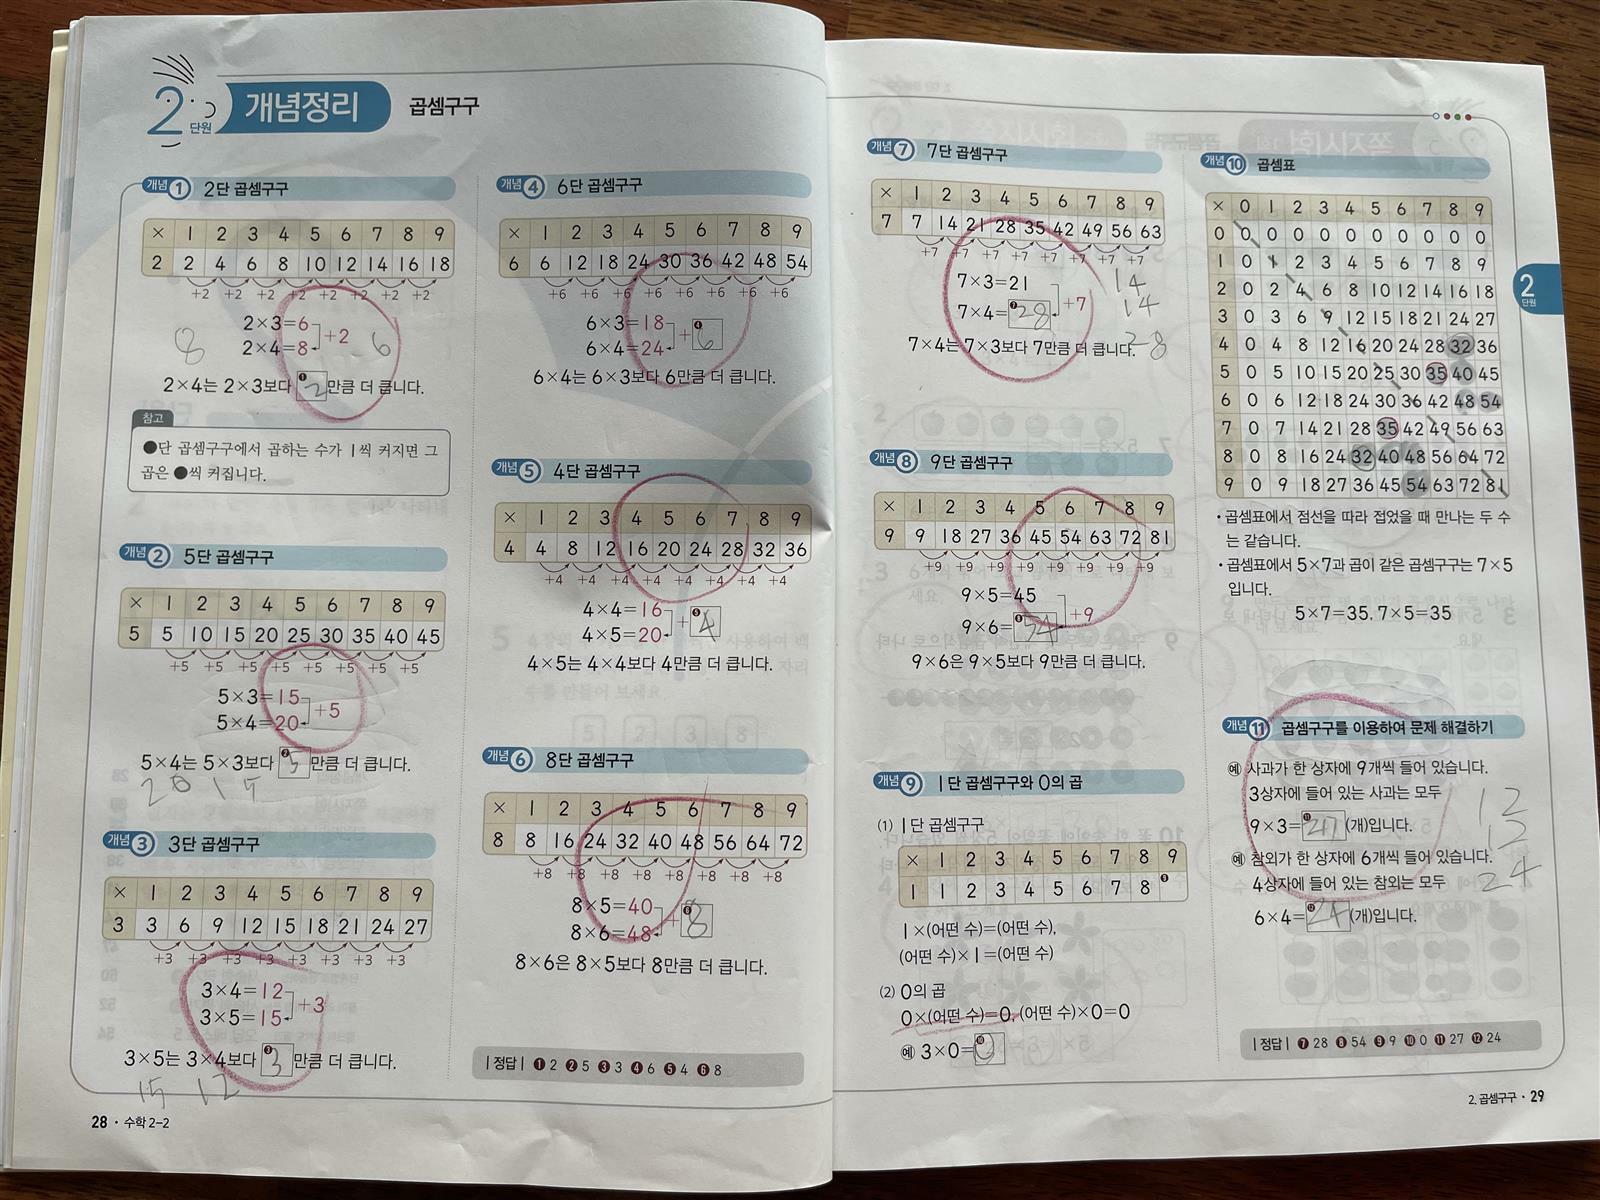 2단원 개념정리 곱셈구구
개념 1 2단 곱셈구구
× 1 2 3 4 5 6 7 8 9
2 2 4 6 8 10 12 14 16 18
+2 +2 +2 +2 +2 +2 +2 +2
2×3=6
2×4=8
+2
8
6
2×4는 2×3보다 ❶2만큼 더 큽니다.
참고
●단 곱셈구구에서 곱하는 수가 1씩 커지면 그
곱은 ●씩 커집니다.
개념 2 5단 곱셈구구
× 1 2 3 4 5 6 7 8 9
5 5 10 15 20 25 30 35 40 45
+5 +5 +5 +5 +5 +5 +5 +5
5×3=15
5×4=20
+5
5×4는 5×3보다 ❷5만큼 더 큽니다.
20 15
개념 3 3단 곱셈구구
× 1 2 3 4 5 6 7 8 9
3 3 6 9 12 15 18 21 24 27
+3 +3 +3 +3 +3 +3 +3 +3
3×4=12
3×5=15
+3
3×5는 3×4보다 ❸3만큼 더 큽니다.
15 12
28 · 수학 2-2
개념 4 6단 곱셈구구
× 1 2 3 4 5 6 7 8 9
6 6 12 18 24 30 36 42 48 54
+6 +6 +6 +6 +6 +6 +6 +6
6×3=18
6×4=24
+❹6
6×4는 6×3보다 6만큼 더 큽니다.
개념 5 4단 곱셈구구
× 1 2 3 4 5 6 7 8 9
4 4 8 12 16 20 24 28 32 36
+4 +4 +4 +4 +4 +4 +4 +4
4×4=16
4×5=20
+❺4
4×5는 4×4보다 4만큼 더 큽니다.
개념 6 8단 곱셈구구
× 1 2 3 4 5 6 7 8 9
8 8 16 24 32 40 48 56 64 72
+8 +8 +8 +8 +8 +8 +8 +8
8×5=40
8×6=48
+❻8
8×6은 8×5보다 8만큼 더 큽니다.
|정답| ❶ 2 ❷ 5 ❸ 3 ❹ 6 ❺ 4 ❻ 8
개념 7 7단 곱셈구구
× 1 2 3 4 5 6 7 8 9
7 7 14 21 28 35 42 49 56 63
+7 +7 +7 +7 +7 +7 +7 +7
7×3=21
7×4=❼28
+7
14
14
28
7×4는 7×3보다 7만큼 더 큽니다.
개념 8 9단 곱셈구구
× 1 2 3 4 5 6 7 8 9
9 9 18 27 36 45 54 63 72 81
+9 +9 +9 +9 +9 +9 +9 +9
9×5=45
9×6=❽54
+9
9×6은 9×5보다 9만큼 더 큽니다.
개념 9 1단 곱셈구구와 0의 곱
(1) 1단 곱셈구구
× 1 2 3 4 5 6 7 8 9
1 1 2 3 4 5 6 7 8 ❾
1×(어떤 수)=(어떤 수),
(어떤 수)×1=(어떤 수)
(2) 0의 곱
0×(어떤 수)=0, (어떤 수)×0=0
예 3×0=❿0
개념 10 곱셈표
× 0 1 2 3 4 5 6 7 8 9
0 0 0 0 0 0 0 0 0 0 0
1 0 1 2 3 4 5 6 7 8 9
2 0 2 4 6 8 10 12 14 16 18
3 0 3 6 9 12 15 18 21 24 27
4 0 4 8 12 16 20 24 28 32 36
5 0 5 10 15 20 25 30 35 40 45
6 0 6 12 18 24 30 36 42 48 54
7 0 7 14 21 28 35 42 49 56 63
8 0 8 16 24 32 40 48 56 64 72
9 0 9 18 27 36 45 54 63 72 81
· 곱셈표에서 점선을 따라 접었을 때 만나는 두 수
는 같습니다.
· 곱셈표에서 5×7과 곱이 같은 곱셈구구는 7×5
입니다.
5×7=35, 7×5=35
개념 11 곱셈구구를 이용하여 문제 해결하기
예 사과가 한 상자에 9개씩 들어 있습니다.
3상자에 들어 있는 사과는 모두
9×3=⓫27(개)입니다.
예 참외가 한 상자에 6개씩 들어 있습니다.
4상자에 들어 있는 참외는 모두
6×4=⓬24(개)입니다.
12
12
24
|정답| ❼ 28 ❽ 54 ❾ 9 ❿ 0 ⓫ 27 ⓬ 24
2단원
2. 곱셈구구 · 29